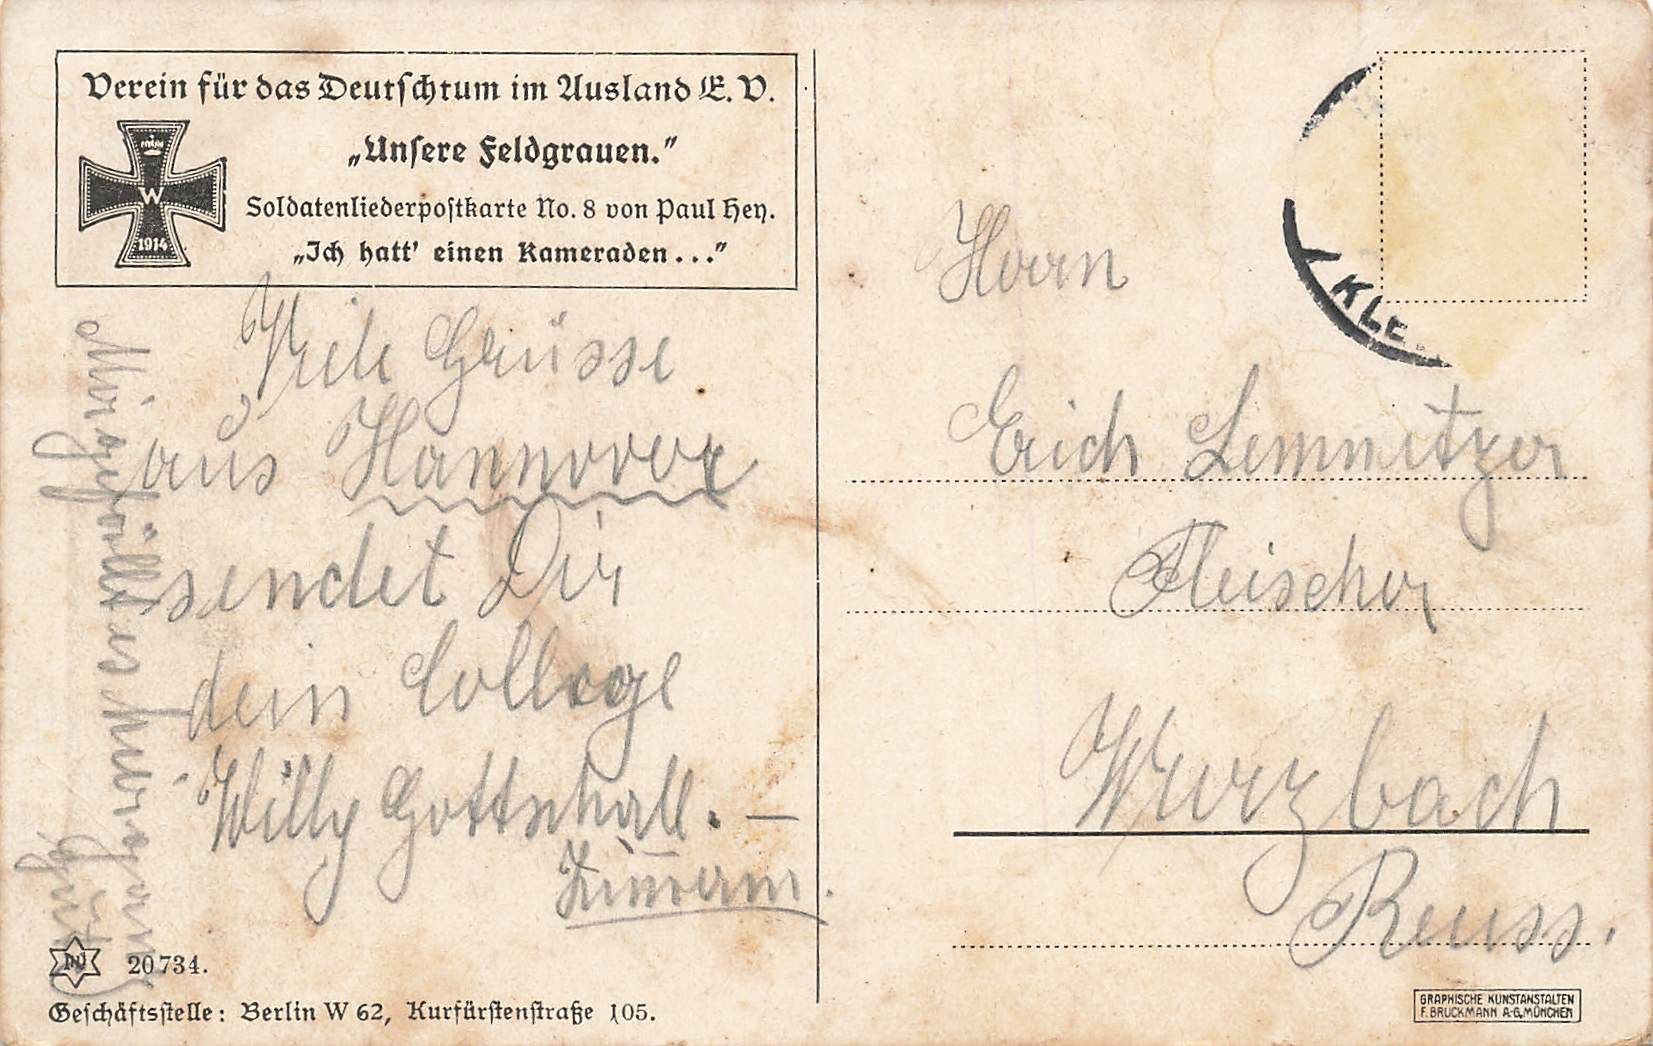 Verein für das Deutschtum im Ausland E. V.
„Unsere Feldgrauen.”
Soldatenliederpostkarte No. 8 von Paul Hey.
„Ich hatt' einen Kameraden...”
W
1914
Viele Grüsse
aus Hannover
sendet Dir
dein College
Willy Gottschall. —
Mir gefällt es hier ganz
gut
Herrn
Erich Lemnitzer
Fleischer
Wurzbach
Reuss.
KLE
20734.
Geschäftsstelle: Berlin W 62, Kurfürstenstraße 105.
GRAPHISCHE KUNSTANSTALTEN
F. BRUCKMANN A-G, MÜNCHEN